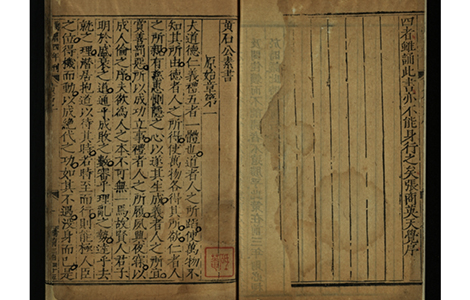 四者雖誦此書亦不能身行之矣張商英天覺序
黃石公素書
原始章第一
夫道德仁義禮五者一體也道者人之所蹈使萬物不
知其所由德者人之所得使萬物各得其所欲仁者人
之所親有慈惠惻隱之心以遂其生成義者人之所宜
賞善罰惡所以成功立事禮者人之所履夙興夜寐以
成人倫之序夫欲為人之本不可無一焉故賢人君子
明於盛衰之道通乎成敗之數審乎理亂之勢達乎去
就之理潛居抱道以待其時若時至而行則能極人臣
之位得機而動以成絕代之功如其不遇沒身而已是